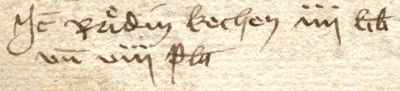 Jtē Růdin kechen iiij lib
vn̄ viij ß